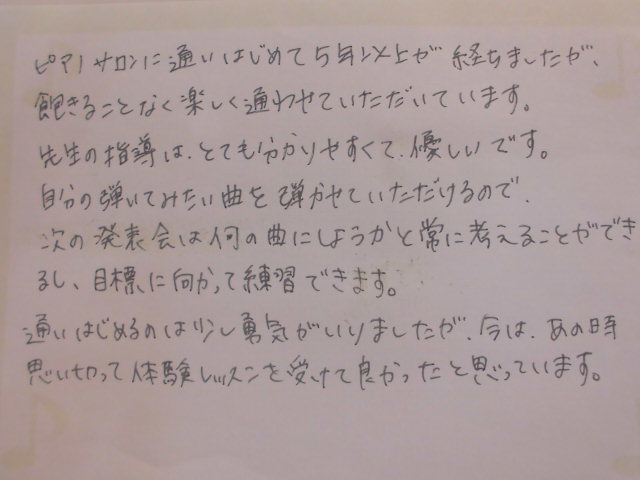 ピアノサロンに通いはじめて5年以上が経ちましたが、
飽きることなく楽しく通わせていただいています。
先生の指導は、とても分かりやすくて、優しいです。
自分の弾いてみたい曲を弾かせていただけるので、
次の発表会は何の曲にしようかと常に考えることができ
るし、目標に向かって練習できます。
通いはじめるのは少し勇気がいりましたが、今は、あの時
思い切って体験レッスンを受けて良かったと思っています。